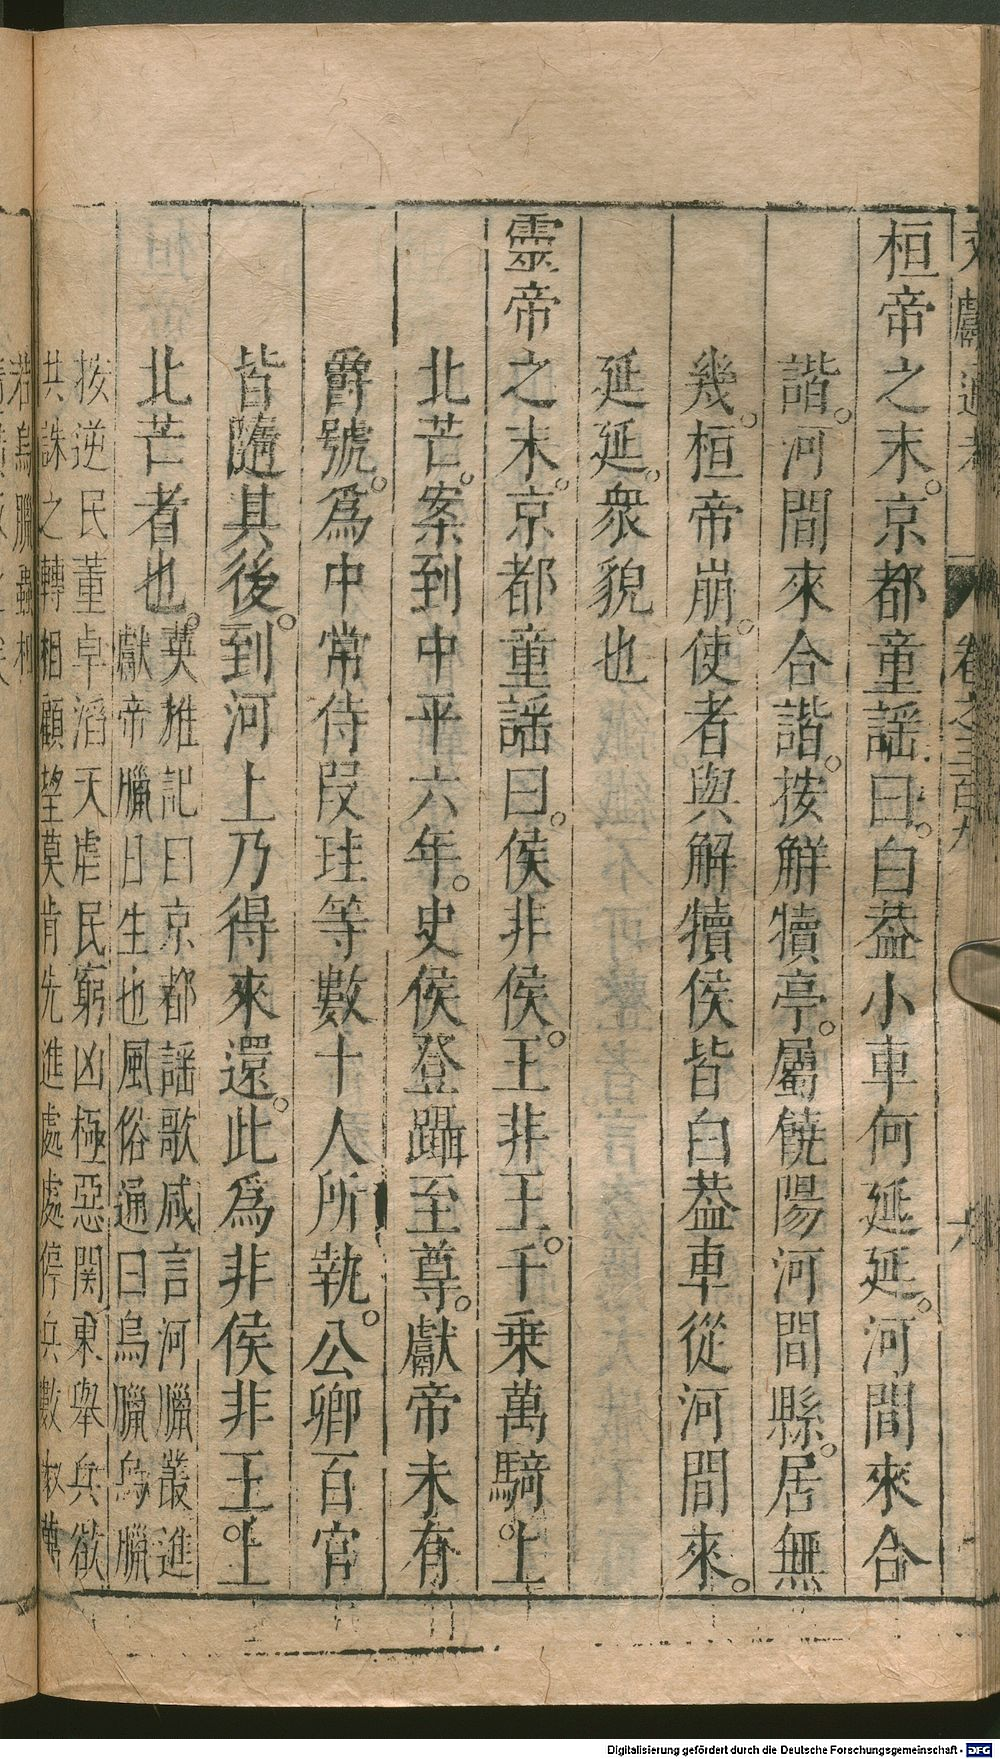 文獻通考 卷之三百九 六
桓帝之末。京都童謡曰。白葢小車何延延。河間來合
諧。河間來合諧。按觧犢亭。屬饒陽河間縣。居無
幾。桓帝崩。使者與解犢侯皆白葢車從河間來。
延延。衆貌也
靈帝之末。京都童謡曰。侯非侯。王非王。千乗萬騎。上
北芒。案到中平六年。史侯登躡至尊。獻帝未有
爵號。爲中常侍段珪等數十人所執。公卿百官
皆隨其後。到河上乃得來還。此爲非侯非王。上
北芒者也。
英雄記曰京都謡歌咸言河臘叢進
獻帝臘日生也風俗通曰烏臘烏臘
按逆民董卓滔天虐民窮凶極惡関東舉兵欲
共誅之轉相顧望莫肯先進處處停兵數十萬
若烏臘蟲相
Digitalisierung gefördert durch die Deutsche Forschungsgemeinschaft - DFG